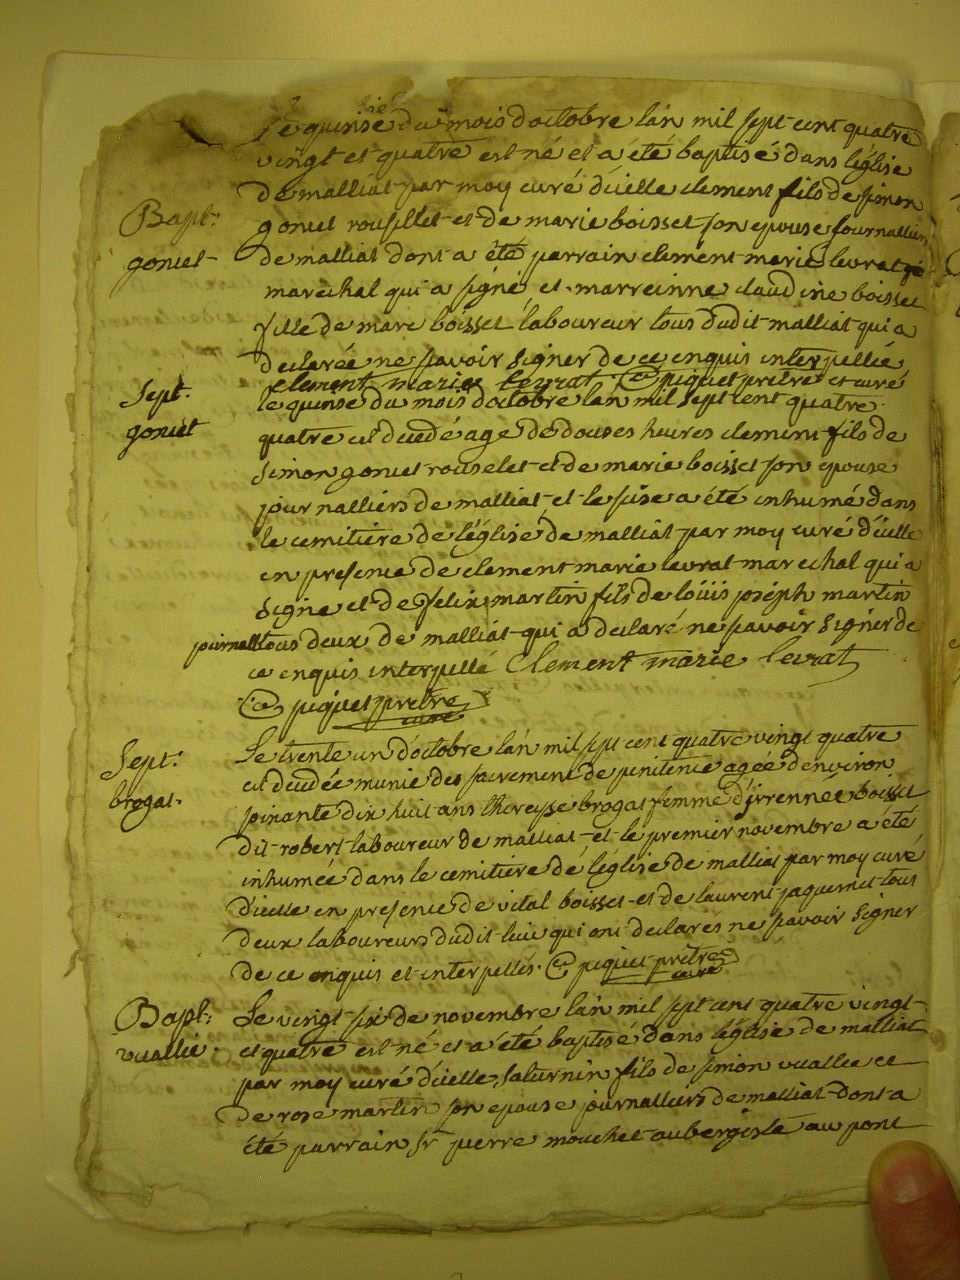 Le quinse du mois doctobre lan mil sept cent quatre
vingt et quatre est né et a été baptisé dans léglise
de malliat par moy curé dicelle clement fils de simon
Bapt: gonet rousillet et de marie boisset son epouse journalliers
gonet de malliat dont a été parrain clement marie levrat
marechal qui a signé et marreinne claudine boisset
fille de marc boisset laboureur tous dudit malliat qui a
declarée ne scavoir signer de ce enquis interpellée
clement marie levrat piquet prètre et curé
Sept. le quinse du mois doctobre lan mil sept cent quatre
gonet quatre est decedé age de douses heures clement fils de
simon gonet rouselet et de marie boisset son epouse
journalliers de malliat et le suse a été inhumé dans
le cemitiere de léglise de malliat par moy curé dicelle
en presence de clement marie levrat marechal qui a
signe et de felix martin fils de loüis joséph martin
journal tous deux de malliat qui a declaré ne scavoir signer de
ce enquis interpellé Clement marie levrat
piquet prètre
curé
Sept. Le trente un doctobre lan mil sept cent quatre vingt quatre
brogat. est decedée munie des sacrement de penitence agée denviron
soixante dix huit ans thereysse brogat femme detienne boisset
dit robert laboureur de malliat et le premier novembre a été
inhumée dans le cemitiere de léglise de malliat par moy curé
dicelle en presence de vital boisset et de laurent jaquemet tous
deux laboureurs dudit lieu qui ont declarés ne scavoir signer
de ce enquis et interpellés. piquet prètre
curé
Bapt: Le vingt six de novembre lan mil sept cent quatre vingt
vuallie. et quatre est né et a été baptisé dans léglise de malliat
par moy curé dicelle saturnin fils de simon vuallie et
de rose martin son epouse journalliers de malliat dont a
été parrain sr pierre mouchet aubergiste au pont